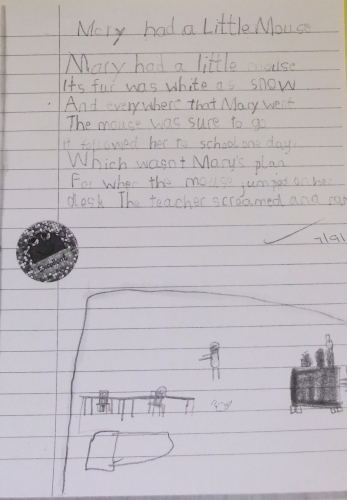 Mary had a Little Mouse
Mary had a little mouse
Its fur was white as snow
And everywhere that Mary went
The mouse was sure to go
it followed her to school one day,
Which wasnt Mary's plan
For when the mouse jumps on her
desk The teacher screamed and ran